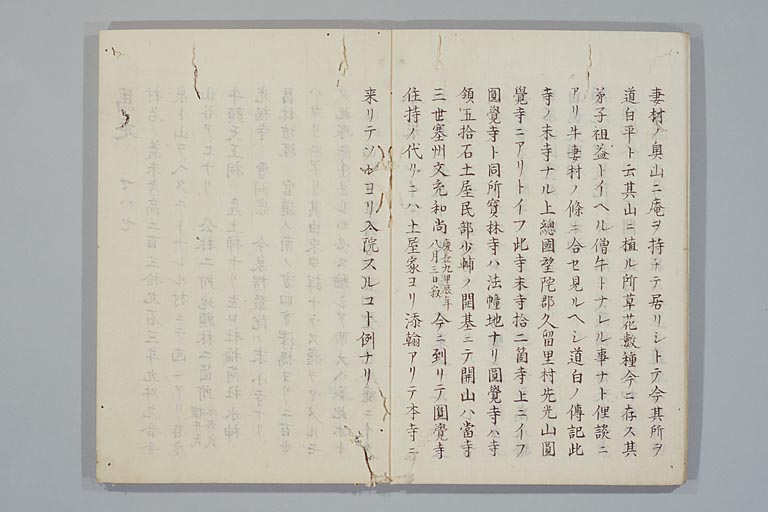 妻村ノ奥山ニ庵ヲ持チテ居リシトテ今其所ヲ
道白平ト云其山ニ植ル所草花数種今ニ存ス其
弟子祖益トイヘル僧牛トナレル事ナト俚談ニ
アリ牛妻村ノ條ニ合セ見ルヘシ道白ノ傳記此
寺ノ末寺ナル上總國望陀郡久留里村先光山圓
覺寺ニアリトイフ此寺末寺拾二箇寺上ニイフ
圓覺寺ト同所寶林寺ハ法幢地ナリ圓覺寺ハ寺
領五拾石土屋民部少輔ノ開基ニテ開山ハ當寺
三世塞州文尭和尚慶長九甲辰年八月三日寂今ニ到リテ圓覺寺
住持ノ代リニハ土屋家ヨリ添翰アリテ本寺ニ
来リテソレヨリ入院スルコト例ナリ